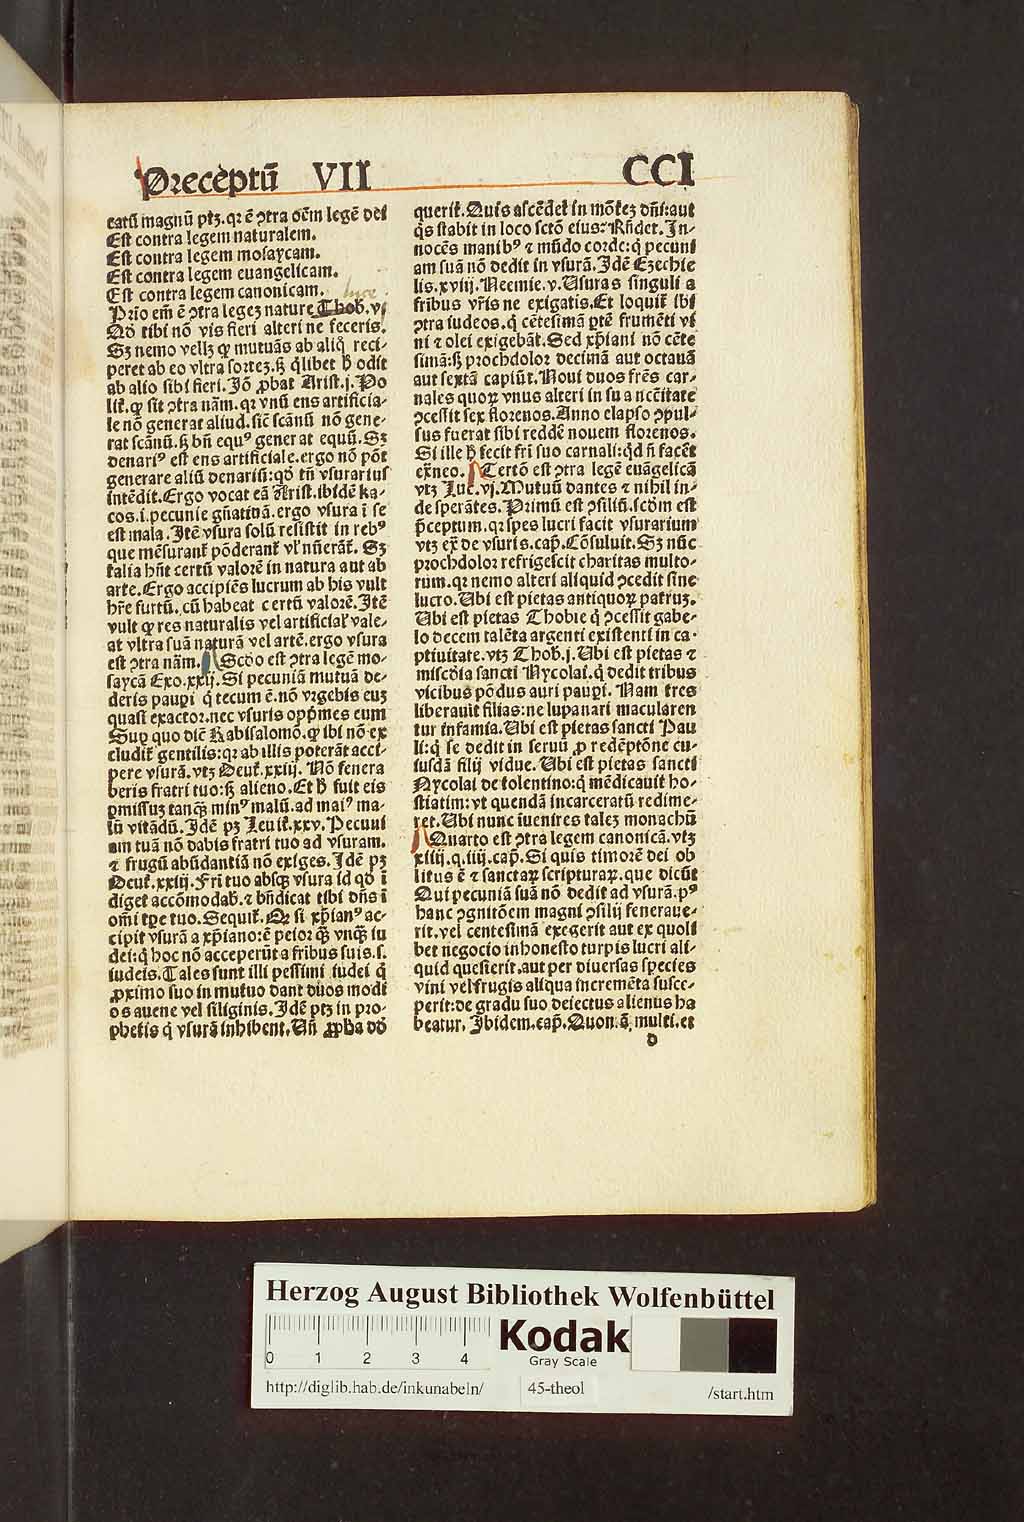 Preceptū VII
CCI
catū magnū ptꝫ. qꝛ ē ↄtra oēm legē dei
Est contra legem naturalem.
Est contra legem mosaycam.
Est contra legem euangelicam.
Est contra legem canonicam.
luce
Pꝛīo em̄ ē ↄtra legeꝫ nature Thob. vi
Qd̓ tibi nō vis fieri alteri ne feceris.
Sꝫ nemo vellꝫ ꝙ mutuās ab aliq̄ reci-
peret ab eo vltra soꝛteꝫ. sꝫ q̄libet h̓ odit
ab alio sibi fieri. Iō ꝓbat Arist. j. Po
lit̄. ꝙ sit ↄtra nām. qꝛ vnū ens artificia-
le nō generat aliud. sic̄ scānū nō gene-
rat scānū. sꝫ bn̄ equꝰ generat equū. Sꝫ
denariꝰ est ens artificiale. ergo nō pōt
generare aliū denariū: qd̓ tn̄ vsurarius
intēdit. Ergo vocat eā Arist. ibidē ka-
cos. i. pecunie gn̄atiuā. ergo vsura ī se
est mala. Itē vsura solū resistit in rebꝰ
que mēsurant̄ pōderant̄ vl̓ nūerāt̄. Sꝫ
talia hn̄t certū valorē in natura aut ab
arte. Ergo accipiēs lucrum ab his vult
hr̄e furtū. cū habeat certū valorē. Itē
vult ꝙ res naturalis vel artificial̓ vale-
at vltra suā naturā vel artē. ergo vsura
est ↄtra nām. Scd̓o est ↄtra legē mo-
saycā Exo. xxij. Si pecuniā mutuā de-
deris pauꝑi q̄ tecum ē. nō vrgebis euꝫ
quasi exactoꝛ. nec vsuris oppͥmes eum
Suꝑ quo diē Rabisalomō. ꝙ ibi nō ex
cludit̄ gentilis: qꝛ ab illis poterāt acci
pere vsurā. vtꝫ Deut̄. xxiij. Nō fenera
beris fratri tuo: sꝫ alieno. Et h̓ fuit eis
ꝑmissuꝫ tanqꝫ minꝰ malū. ad maiꝰ ma-
lū vitādū. Idē pꝫ Leuit̄. xxv. Pecuni
am tuā nō dabis fratri tuo ad vsuram.
⁊ frugū abūdantiā nō exiges. Idē pꝫ
Deut̄. xxiij. Fr̄i tuo absqꝫ vsura id qd̓ ī
diget accōmodab̓. ⁊ bn̄dicat tibi dn̄s ī
om̄i tꝑe tuo. Sequit̄. Qꝛ si xp̄ianꝰ ac-
cipit vsurā a xp̄iano: ē peioꝛ qꝫ vnqꝫ iu
dei: q̄ hoc nō acceperūt a fribus suis. s.
iudeis. Tales sunt illi pessimi iudei q̄
ꝓximo suo in mutuo dant duos modi
os auene vel siliginis. Idē ptꝫ in pꝛo-
phetis q̄ vsurā inhibent. Un̄ ꝓpha dd̓
querit̄. Quis ascēdet in mōteꝫ dn̄i: aut
q̄s stabit in loco scto̅ eius? Rn̄det. In-
nocēs manibꝰ ⁊ mūdo coꝛde: q̄ pecuni
am suā nō dedit in vsurā. Idē Ezechie
lis. xviij. Neemie. v. Usuras singuli a
fribus vr̄is ne exigatis. Et loquit̄ ibi
ↄtra iudeos. q̄ cētesimā ꝑtē frumēti vi
ni ⁊ olei exigebāt. Sed xp̄iani nō cēte
simā: sꝫ pꝛochdoloꝛ decimā aut octauā
aut sextā capiūt. Noui duos frēs car-
nales quoꝝ vnus alteri in sua nc̄citate
ↄcessit sex floꝛenos. Anno elapso ↄpul-
sus fuerat sibi reddē nouem floꝛenos.
Si ille h̓ fecit fri suo carnali: qd̓ n̄ facēt
ext̄neo. Tertō est ↄtra legē euāgelicā
vtꝫ Luc. vj. Mutuū dantes ⁊ nihil in-
de sperātes. Pꝛimū est ↄsiliū. scd̓m est
p̄ceptum. qꝛ spes lucri facit vsurarium
vtꝫ ex̄ de vsuris. cap̄. Cōsuluit. Sꝫ nūc
pꝛochdoloꝛ refrigescit charitas multo-
rum. qꝛ nemo alteri aliquid ↄcedit sine
lucro. Ubi est pietas antiquoꝝ patruꝫ.
Ubi est pietas Thobie q̄ ↄcessit gabe-
lo decem talēta argenti existenti in ca-
ptiuitate. vtꝫ Thob̓. j. Ubi est pietas ⁊
misc̄dia sancti Nycolai. q̄ dedit tribus
vicibus pōdus auri pauꝑi. Nam tres
liberauit filias: ne lupanari macularen
tur infamia. Ubi est pietas sancti Pau
li: q̄ se dedit in seruū ꝓ redēptōne cu-
iusdā filij vidue. Ubi est pietas sancti
Nycolai de tolentino: q̄ mēdicauit ho-
stiatim: vt quendā incarceratū redime-
ret. Ubi nunc iuenires taleꝫ monachū
Quarto est ↄtra legem canonicā. vtꝫ
xiiij. q. iiij. cap̄. Si quis timoꝛē dei ob
litus ē ⁊ sanctaꝝ scripturaꝝ. que dicūt
Qui pecuniā suā nō dedit ad vsurā. pꝰ
hanc ↄgnitōem magni ↄsilij feneraue-
rit. vel centesimā exegerit aut ex quoli
bet negocio inhonesto turpis lucri ali-
quid quesierit. aut per diuersas species
vini vel frugis aliqua incremēta susce-
perit: de gradu suo deiectus alienus ha
beatur. Ibidem. cap̄. Quoniā multi. et
d
Herzog August Bibliothek Wolfenbüttel
0 1 2 3 4
Kodak
Gray Scale
http://diglib.hab.de/inkunabeln/ 45-theol /start.htm